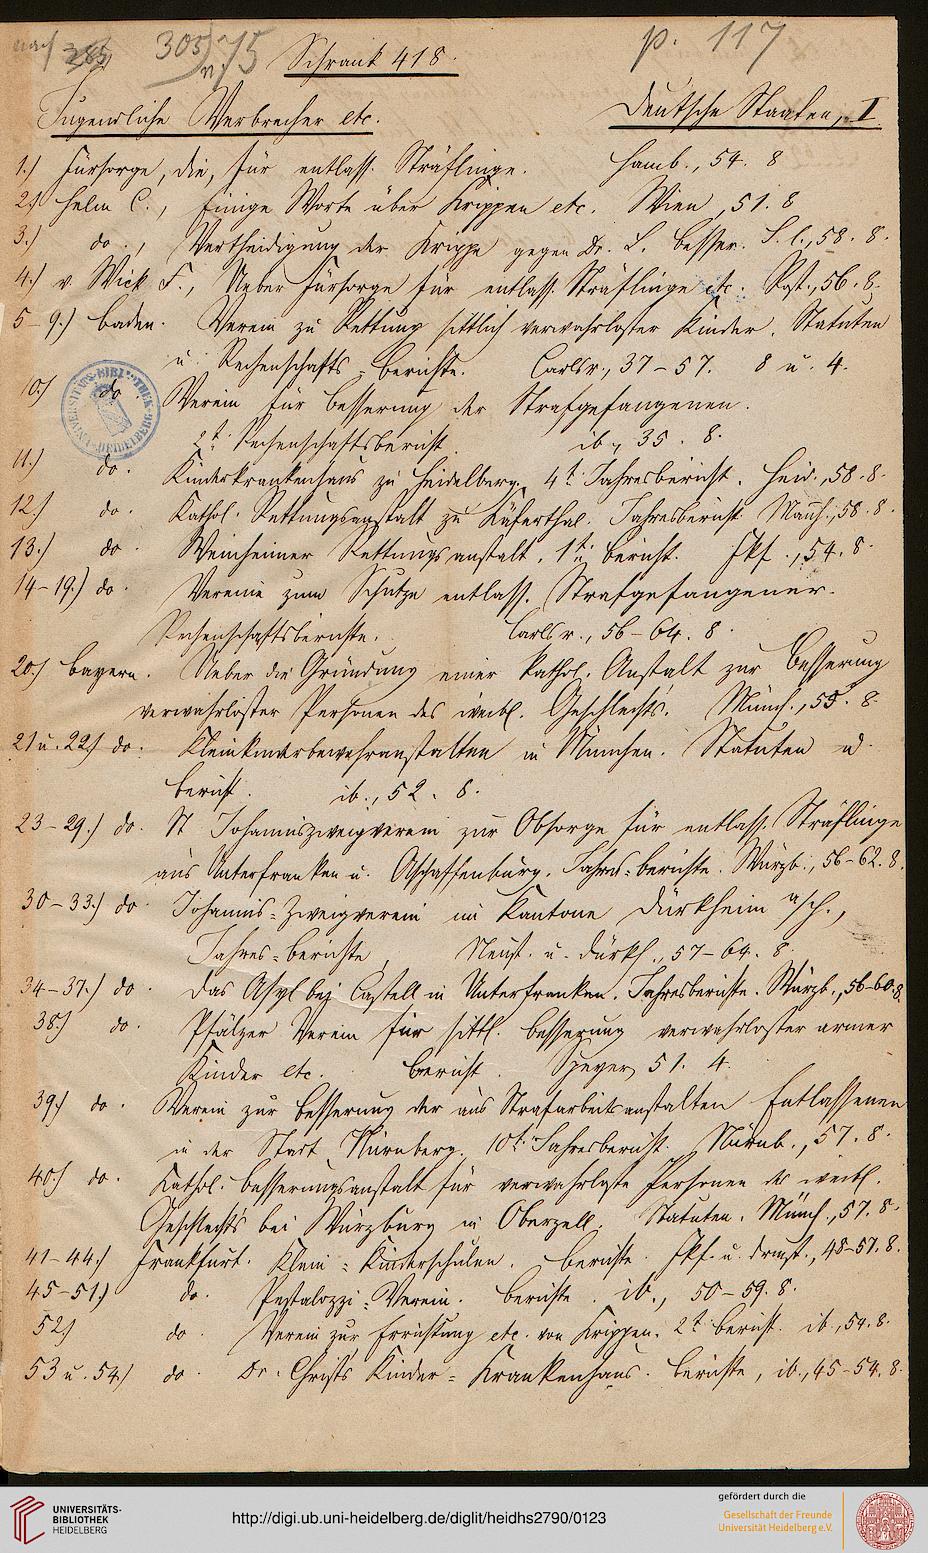 305/75 p. 117
Schrank 418.
Jugendliche Verbrecher etc. Deutsche Staaten, I
1.) Fürsorge, die, für entlass. Sträflinge. Hamb., 54. 8
2.) Helm C., Einige Worte über Krippen etc. Wien, 51. 8
3.) do., Vertheidigung der Krippe gegen Dr. L. Besser. S. l., 58. 8.
4.) v. Wick F., Ueber Fürsorge für entlass. Sträflinge etc. Rost., 56. 8.
5–9.) Baden. Verein zu Rettung sittlich verwahrloster Kinder. Statuten
u. Rechenschafts-Berichte. Carlsr., 37–57. 8 u. 4.
10.) do. Verein für Besserung der Strafgefangenen.
2t. Rechenschaftsbericht. ib., 35. 8.
11.) do. Kinderkrankenhaus zu Heidelberg. 4t. Jahresbericht. Heid., 58. 8.
12.) do. Kathol. Rettungsanstalt zu Käferthal. Jahresbericht. Manh., 58. 8.
13.) do. Weinheimer Rettungsanstalt. 1t. Bericht. Fkf., 54. 8.
14–19.) do. Vereine zum Schutze entlass. Strafgefangener.
Rechenschaftsberichte. Carlsr., 56–64. 8.
20.) Bayern. Ueber die Gründung einer kathol. Anstalt zur Besserung
verwahrloster Personen des weibl. Geschlechts. Münch., 55. 8.
21 u. 22.) do. Kleinkinderbewahranstalten in München. Statuten u.
Bericht. ib., 52. 8.
23–29.) do. St Johanniszweigverein zur Obsorge für entlass. Sträflinge
aus Unterfranken u. Aschaffenburg. Jahres-Berichte. Würzb., 56–62. 8.
30–33.) do. Johannis-Zweigverein im Kantone Dürkheim a/h.,
Jahres-Berichte, Neust. u. Dürkh., 57–64. 8.
34–37.) do. Das Asyl bei Castell in Unterfranken. Jahresberichte. Würzb., 56–60. 8.
38.) do. Pfälzer Verein für sittl. Besserung verwahrloster armer
Kinder etc. Bericht. Speyer, 51. 4.
39.) do. Verein zur Besserung der aus Strafarbeitsanstalten Entlassenen
in der Stadt Nürnberg. 10t. Jahresbericht. Nürnb., 57. 8.
40.) do. Kathol. Besserungsanstalt für verwahrloste Personen des weibl.
Geschlechts bei Würzburg in Oberzell. Statuten. Münch., 57. 8.
41–44.) Frankfurt. Klein-Kinderschulen. Berichte. Fkf. u. Drmst., 48–57. 8.
45–51.) do. Pestalozzi-Verein. Berichte. ib., 50–59. 8.
52.) do. Verein zur Errichtung etc. von Krippen. 2t. Bericht. ib., 54. 8.
53 u. 54.) do. Dr. Christ's Kinder-Krankenhaus. Berichte, ib., 45–54. 8.
UNIVERSITÄTS-
BIBLIOTHEK
HEIDELBERG
http://digi.ub.uni-heidelberg.de/diglit/heidhs2790/0123
gefördert durch die
Gesellschaft der Freunde
Universität Heidelberg e.V.